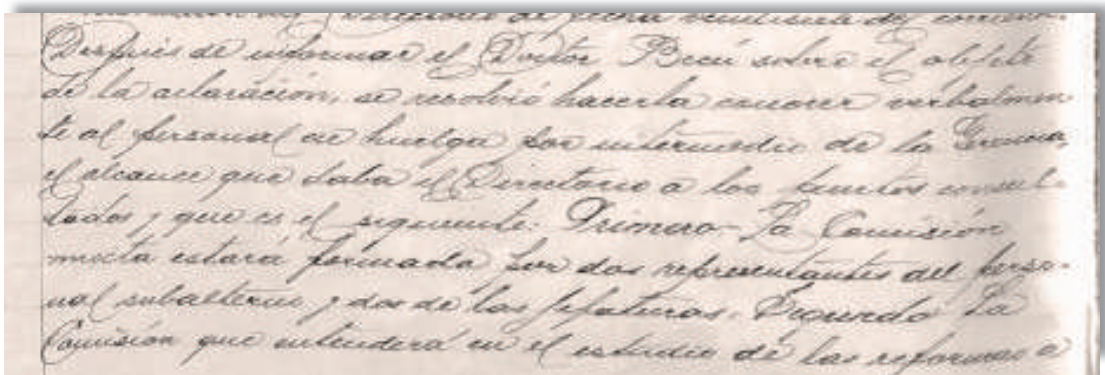 Directorio de fecha veintisiete del corriente.
Después de informar el Doctor Becú sobre el objeto
de la aclaración, se resolvió hacerla conocer verbalmen-
te al personal en huelga por intermedio de la Gerencia,
el alcance que daba el Directorio a los puntos consul-
tados y que es el siguiente: Primero - La Comisión
mixta estará formada por dos representantes del perso-
nal subalterno y dos de las jefaturas. Segundo La
Comisión que entenderá en el estudio de las reformas a